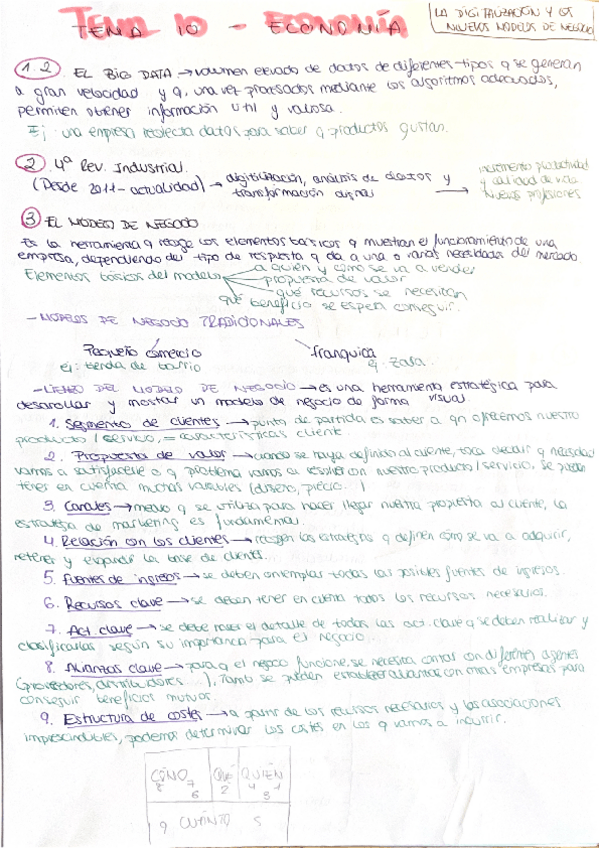 TEMA 10 - ECONOMÍA
LA DIGITALIZACIÓN Y LOS
NUEVOS MODELOS DE NEGOCIO
1.2 EL BIG DATA → volumen elevado de datos de diferentes tipos q se generan
a gran velocidad y q, una vez procesados mediante los algoritmos adecuados,
permiten obtener información útil y valiosa.
Ej: una empresa recolecta datos para saber q productos gustan.
2 4ª Rev. Industrial.
(Desde 2011 - actualidad) → digitilización, análisis de datos y
transformación digital
→ incremento productividad
y calidad de vida
Nuevas profesiones
3 EL MODELO DE NEGOCIO
Es la herramienta q recoge los elementos básicos q muestran el funcionamiento de una
empresa, dependiendo del tipo de respuesta q da a una o varias necesidades del mercado
Elementos básicos del modelo
a quién y cómo se va a vender
propuesta de valor
qué recursos se necesitan
qué beneficio se espera conseguir.
- MODELOS DE NEGOCIO TRADICIONALES
Pequeño comercio
ej: tienda de barrio
franquicia
ej: Zara.
- LIENZO DEL MODELO DE NEGOCIO → es una herramienta estratégica para
desarollar y mostrar un modelo de negocio de forma visual.
1. Segmento de clientes → punto de partida es saber a qn ofrecemos nuestro
producto / servicio, = características cliente.
2. Propuesta de valor → cuando se haya definido al cliente, toca decidir q necesidad
vamos a satisfacerle o q problema vamos a resolver con nuestro producto / servicio. Se pueden
tener en cuenta muchas variables (diseño, precio...)
3. Canales → medio q se utiliza para hacer llegar nuestra propuesta al cliente, la
estrategia de marketing es fundamental.
4. Relación con los clientes → recogen las estrategias q definen cómo se va a adquirir,
retener y expandir la base de clientes.
5. Fuentes de ingresos → se deben contemplar todas las posibles fuentes de ingresos.
6. Recursos clave → se deben tener en cuenta todos los recursos necesarios.
7. Act clave → se debe hacer el detalle de todas las act. clave q se deben realizar y
clasificarlas según su importancia para el negocio
8. Alianzas clave → para q el negocio funcione se necesita contar con diferentes agentes
(proveedores, distribuidores ...). Tamb se pueden establecer alianzas con otras empresas para
conseguir beneficios mutuos.
9. Estructura de costes → a partir de los recursos necesarios y las asociaciones
imprescindibles, podemos determinar los costes en los q vamos a incurrir.
CÓMO QUÉ QUIÉN
8 7 6 2 4 1 3
9 CUÁNTO 5